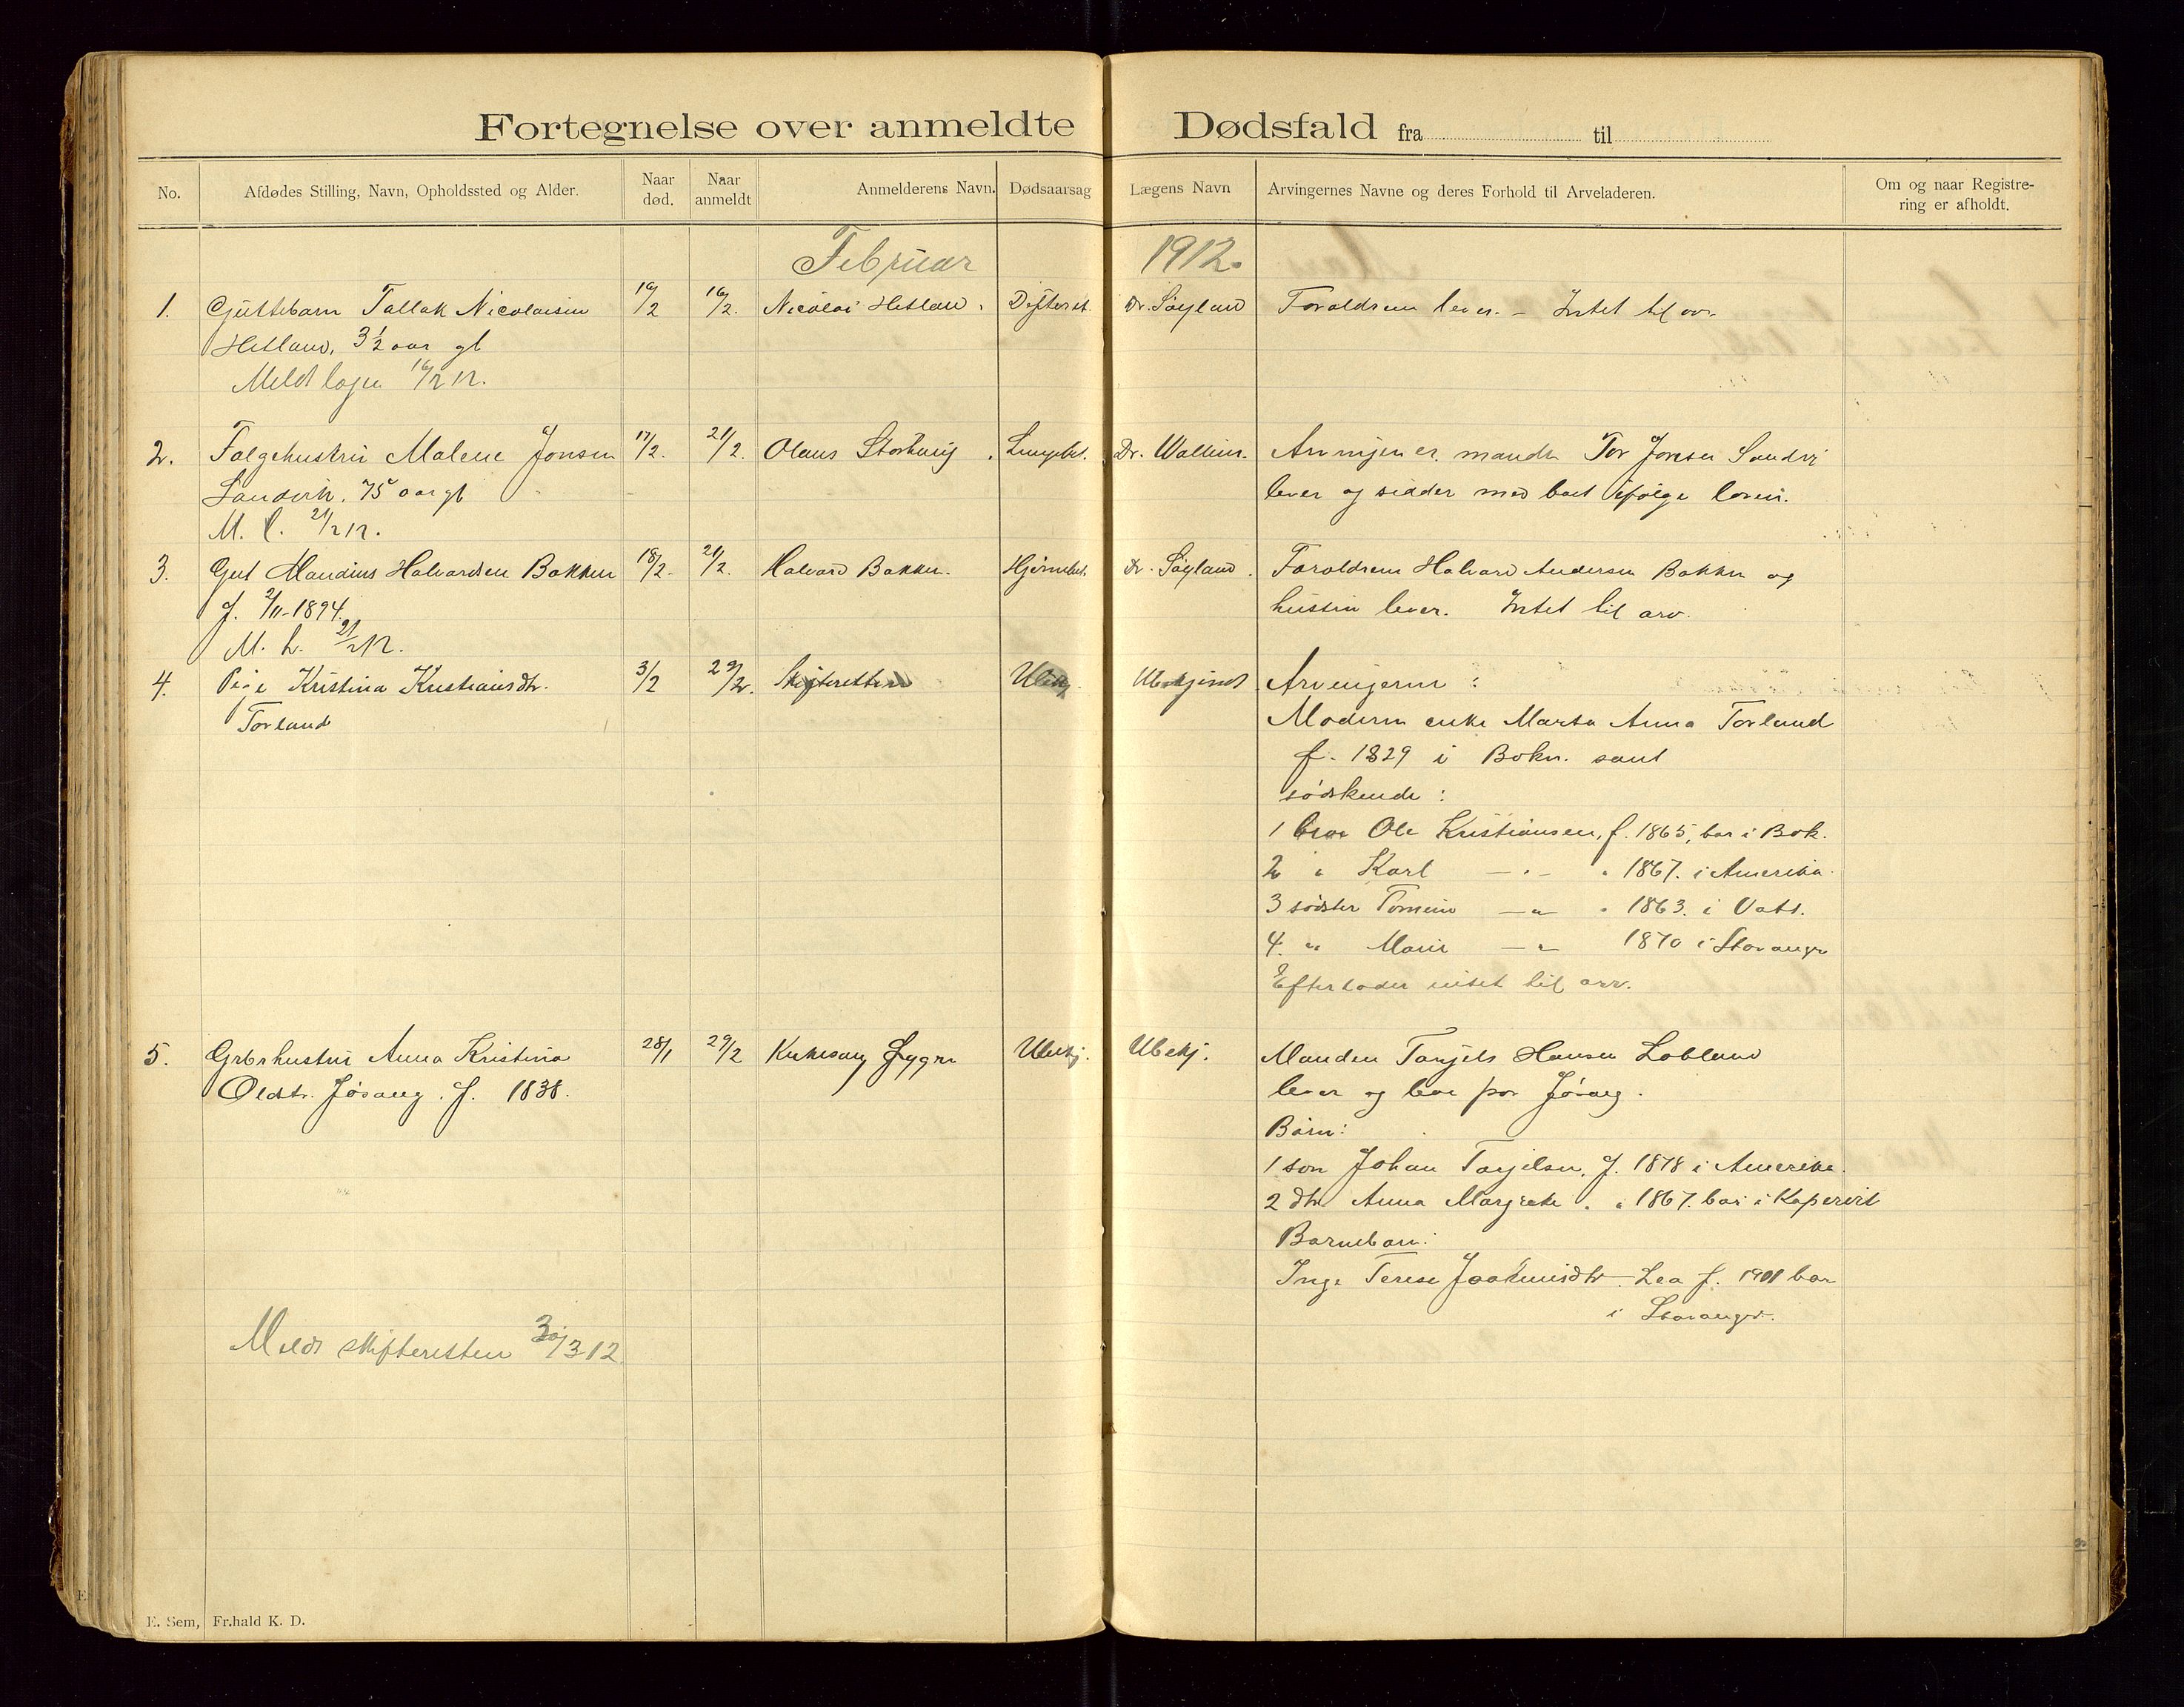 Fortegnelse over anmeldte Dødsfald fra til
No. Afdødes Stilling, Navn, Opholdssted og Alder. Naar død. Naar anmeldt Anmelderens Navn. Dødsaarsag Lægens Navn Arvingernes Navne og deres Forhold til Arveladeren. Om og naar Registrering er afholdt.
Februar 1912.
1. Guttebarn Tallak Nicolaisen 16/2 16/2. Nicolai Hetland. Difterit. Dr. Søyland Forældrene lever. - Intet til arv.
Hetland, 3 1/2 aar gl
Meldt 16/2 12.
2. Følgehustru Malene Jonsen 17/2. 21/2. Olaus Storhaug. Lungebet. Dr. Wallem. Arvingen er manden Tor Jonsen Sandvi
Sandvik. 75 aar gl lever og sidder med boet ifølge loven.
M. l. 21/2 12.
3. Gut Mandius Halvardsen Bakken 18/2. 21/2. Halvard Bakken. Hjernebet. Dr. Søyland. Forældrene Halvard Andersen Bakken og
f. 2/11-1894. hustru lever. Intet til arv.
M. l. 21/2 12.
4. Pige Kristina Kristiansdtr. 3/2 29/2. Skifteretten Ubekj. Ubekjendt Arvingerne:
Torland Moderen enke Marta Anna Torland
f. 1829 i Bokn. samt
södskende:
1 bror Ole Kristiansen, f. 1865, bor i Bok.
2 " Karl — " — " 1867. i Amerika.
3 söster — " — " 1863. i Vats.
4. " Marie — " — 1870 i Stavanger
Efterlader intet til arv.
5. Grbrhustru Anna Kristina 28/1 29/2 Ubekj. Ubekj. Manden Tarjels Hansen Lobland
Oldstr. Jøsang. f. 1838. lever og bor paa Jösang.
Börn:
1 sön Johan Tarjelsen, f. 1878 i Amerika.
2 dtr Anna Margrete " " 1867. bor i Kopervik
Barnebarn:
Inge Terese Joakimsdtr. Lea f. 1901 bor
i Stavanger.
Meldt skifteretten 30/3 12
E. Sem, Fr.hald K. D.